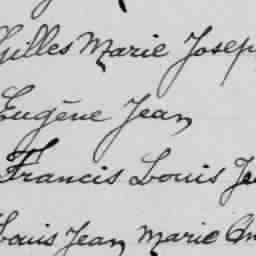 Gilles Marie Joseph
Eugène Jean
Francis Louis Je
Louis Jean Marie